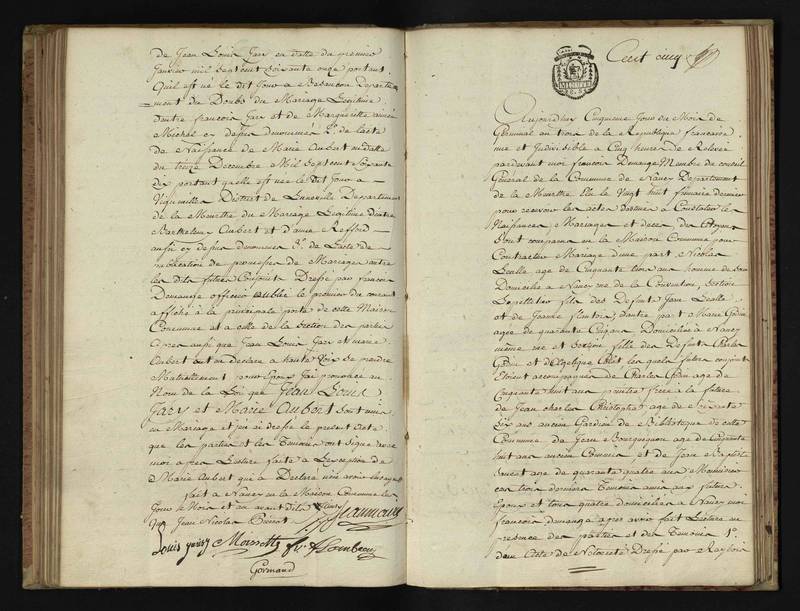 de Jean Louis Jary en datte du premier
Janvier mil Sept cent Soixante onze portant
Quil est né le dit Jour a Besancon Departe
ment du Doubs du Mariage Legitime
dantre francois Jary et de Marguerite aimée
Michel cy depuis denommés 2°. de lacte
de Naissance de Marie Aubert en datte
du treize Decembre Mil Sept cent Soixante
dix portant quelle est née le dit Jour a
District de Luneville Departement
de la Meurthe du Mariage Legitime dentre
Barthelemy Aubert et danne
aussi cy depuis denommés 3°. de Lacte de
publication de promesses de Mariage entre
les dits futurs Conjoints Dressé par francois
Demange officier public le premier du courant
affiché a la principale porte de cette Maison
Commune et a celle de la Section des parties
apres aussi que Jean Louis Jary et marie
Aubert ont eu Declaré a haute voix se prendre
Mutuellement pour Epoux J'ai prononcé au
Nom de la Loi que Jean Louis
Jary et Marie Aubert sont unis
en Mariage et j'ai dressé le present acte
que les parties et les Temoins ont signé avec
moi apres Lecture faite a Lexception de
Marie Aubert qui a Declaré
fait a Nancy en la Maison Commune les
Jour le Mois et an avant dits
Jean Nicolas
Louis jary
Gormand
Cent cinq
Aujourdhuy Cinquieme Jour du Mois de
Germinal an trois de la Republique francaise
une et Indivisible a Cinq heures de Relevée
pardevant moi francois Demange Membre du conseil
General de la Commune de Nancy Departement
de la Meurthe Elu le Vingt huit frimaire dernier
pour recevoir les actes destinés a Constater les
Naissances Mariages et deces des Citoyens
Sont comparus en la Maison Commune pour
Contracter Mariage dune part Nicolas
agé de Cinquante trois ans homme de
Domicilié a Nancy rue de la Convention Section
Lepelletier fils des Defunts Jean
et de Jeanne dautre part Marie
agée de quarante Cinq ans Domiciliée a Nancy
même rue et Section fille des Defunts Charles
et dAngelique les quels futurs conjoints
Etoient accompagnés de Charles agé de
Cinquante huit ans peintre frere a la future
de Jean charles Christophe agé de
Six ans ancien Gardien de Bibliotheque de cette
Commune de Jean Bourguignon agé de Cinquante
huit ans ancien Commis et de Jean Baptiste
agé de quarante quatre ans
ces trois derniers Temoins amis aux futurs
Epoux et tous quatre domiciliés a Nancy moi
francois demange apres avoir fait Lecture en
presence des parties et des Temoins 1°.
dun Acte de Notorieté Dressé par